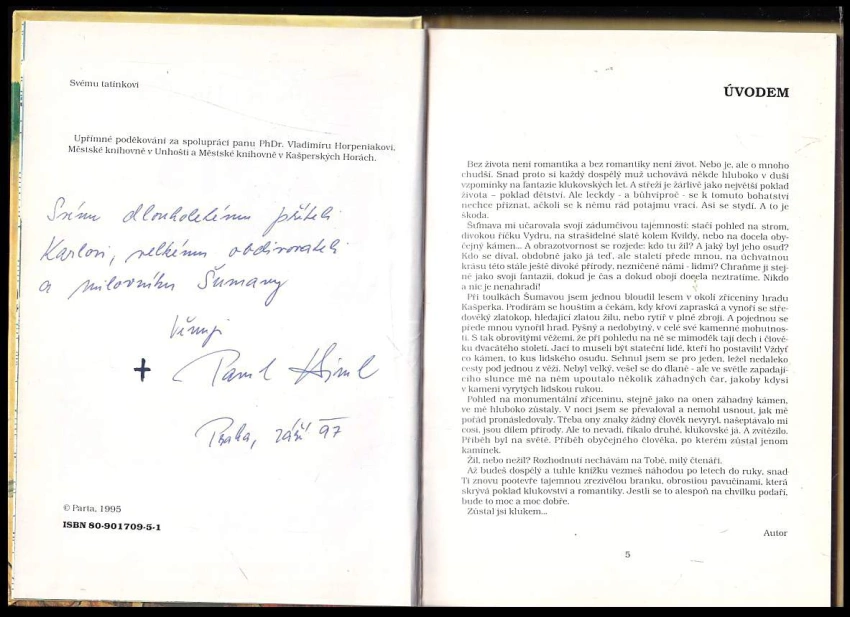 Svému tatínkovi
Upřímné poděkování za spolupráci panu PhDr. Vladimíru Horpeniakovi,
Městské knihovně v Unhošti a Městské knihovně v Kašperských Horách.
Svému dlouholetému příteli
Karlovi, velkému obdivovateli
a milovníku Šumavy
Věnuji
Praha, září 97
© Parta, 1995
ISBN 80-901709-5-1
ÚVODEM
Bez života není romantika a bez romantiky není život. Nebo je, ale o mnoho
chudší. Snad proto si každý dospělý muž uchovává někde hluboko v duši
vzpomínky na fantazie klukovských let. A střeží je žárlivě jako největší poklad
života – poklad dětství. Ale leckdy - a bůhvíproč - se k tomuto bohatství
nechce přiznat, ačkoli se k němu rád potajmu vrací. Asi se stydí. A to je
škoda.
Šumava mi učarovala svojí zádumčivou tajemností: stačí pohled na strom,
divokou říčku Vydru, na strašidelné slatě kolem Kvildy, nebo na docela oby-
čejný kámen... A obrazotvornost se rozjede: kdo tu žil? A jaký byl jeho osud?
Kdo se díval, obdobně jako já teď, ale staletí přede mnou, na úchvatnou
krásu této stále ještě divoké přírody, nezničené námi - lidmi? Chraňme ji stej-
ně jako svoji fantazii, dokud je čas a dokud obojí docela neztratíme. Nikdo
a nic je nenahradí!
Při toulkách Šumavou jsem jednou bloudil lesem v okolí zříceniny hradu
Kašperka. Prodírám se houštím a čekám, kdy křoví zapraská a vynoří se stře-
dověký zlatokop, hledající zlatou žílu, nebo rytíř v plné zbroji. A pojednou se
přede mnou vynořil hrad. Pyšný a nedobytný, v celé své kamenné mohutnos-
ti. S tak obrovitými věžemi, že při pohledu na ně se mimoděk tají dech i člově-
ku dvacátého století. Jací to museli být stateční lidé, kteří ho postavili! Vždyť
co kámen, to kus lidského osudu. Sehnul jsem se pro jeden, ležel nedaleko
cesty pod jednou z věží. Nebyl velký, vešel se do dlaně - ale ve světle zapadají-
cího slunce mě na něm upoutalo několik záhadných čar, jakoby kdysi
v kameni vyrytých lidskou rukou.
Pohled na monumentální zříceninu, stejně jako na onen záhadný kámen,
ve mě hluboko zůstaly. V noci jsem se převaloval a nemohl usnout, jak mě
pořád pronásledovaly. Třeba ony znaky žádný člověk nevyryl, našeptávalo mi
cosi, jsou dílem přírody. Ale to nevadí, říkalo druhé, klukovské já. A zvítězilo.
Příběh byl na světě. Příběh obyčejného člověka, po kterém zůstal jenom
kamínek.
Žil, nebo nežil? Rozhodnutí nechávám na Tobě, milý čtenáři.
Až budeš dospělý a tuhle knížku vezmeš náhodou po letech do ruky, snad
Ti znovu pootevře tajemnou zrezivělou branku, obrostlou pavučinami, která
skrývá poklad klukovství a romantiky. Jestli se to alespoň na chvilku podaří,
bude to moc a moc dobře.
Zůstal jsi klukem...
Autor
5